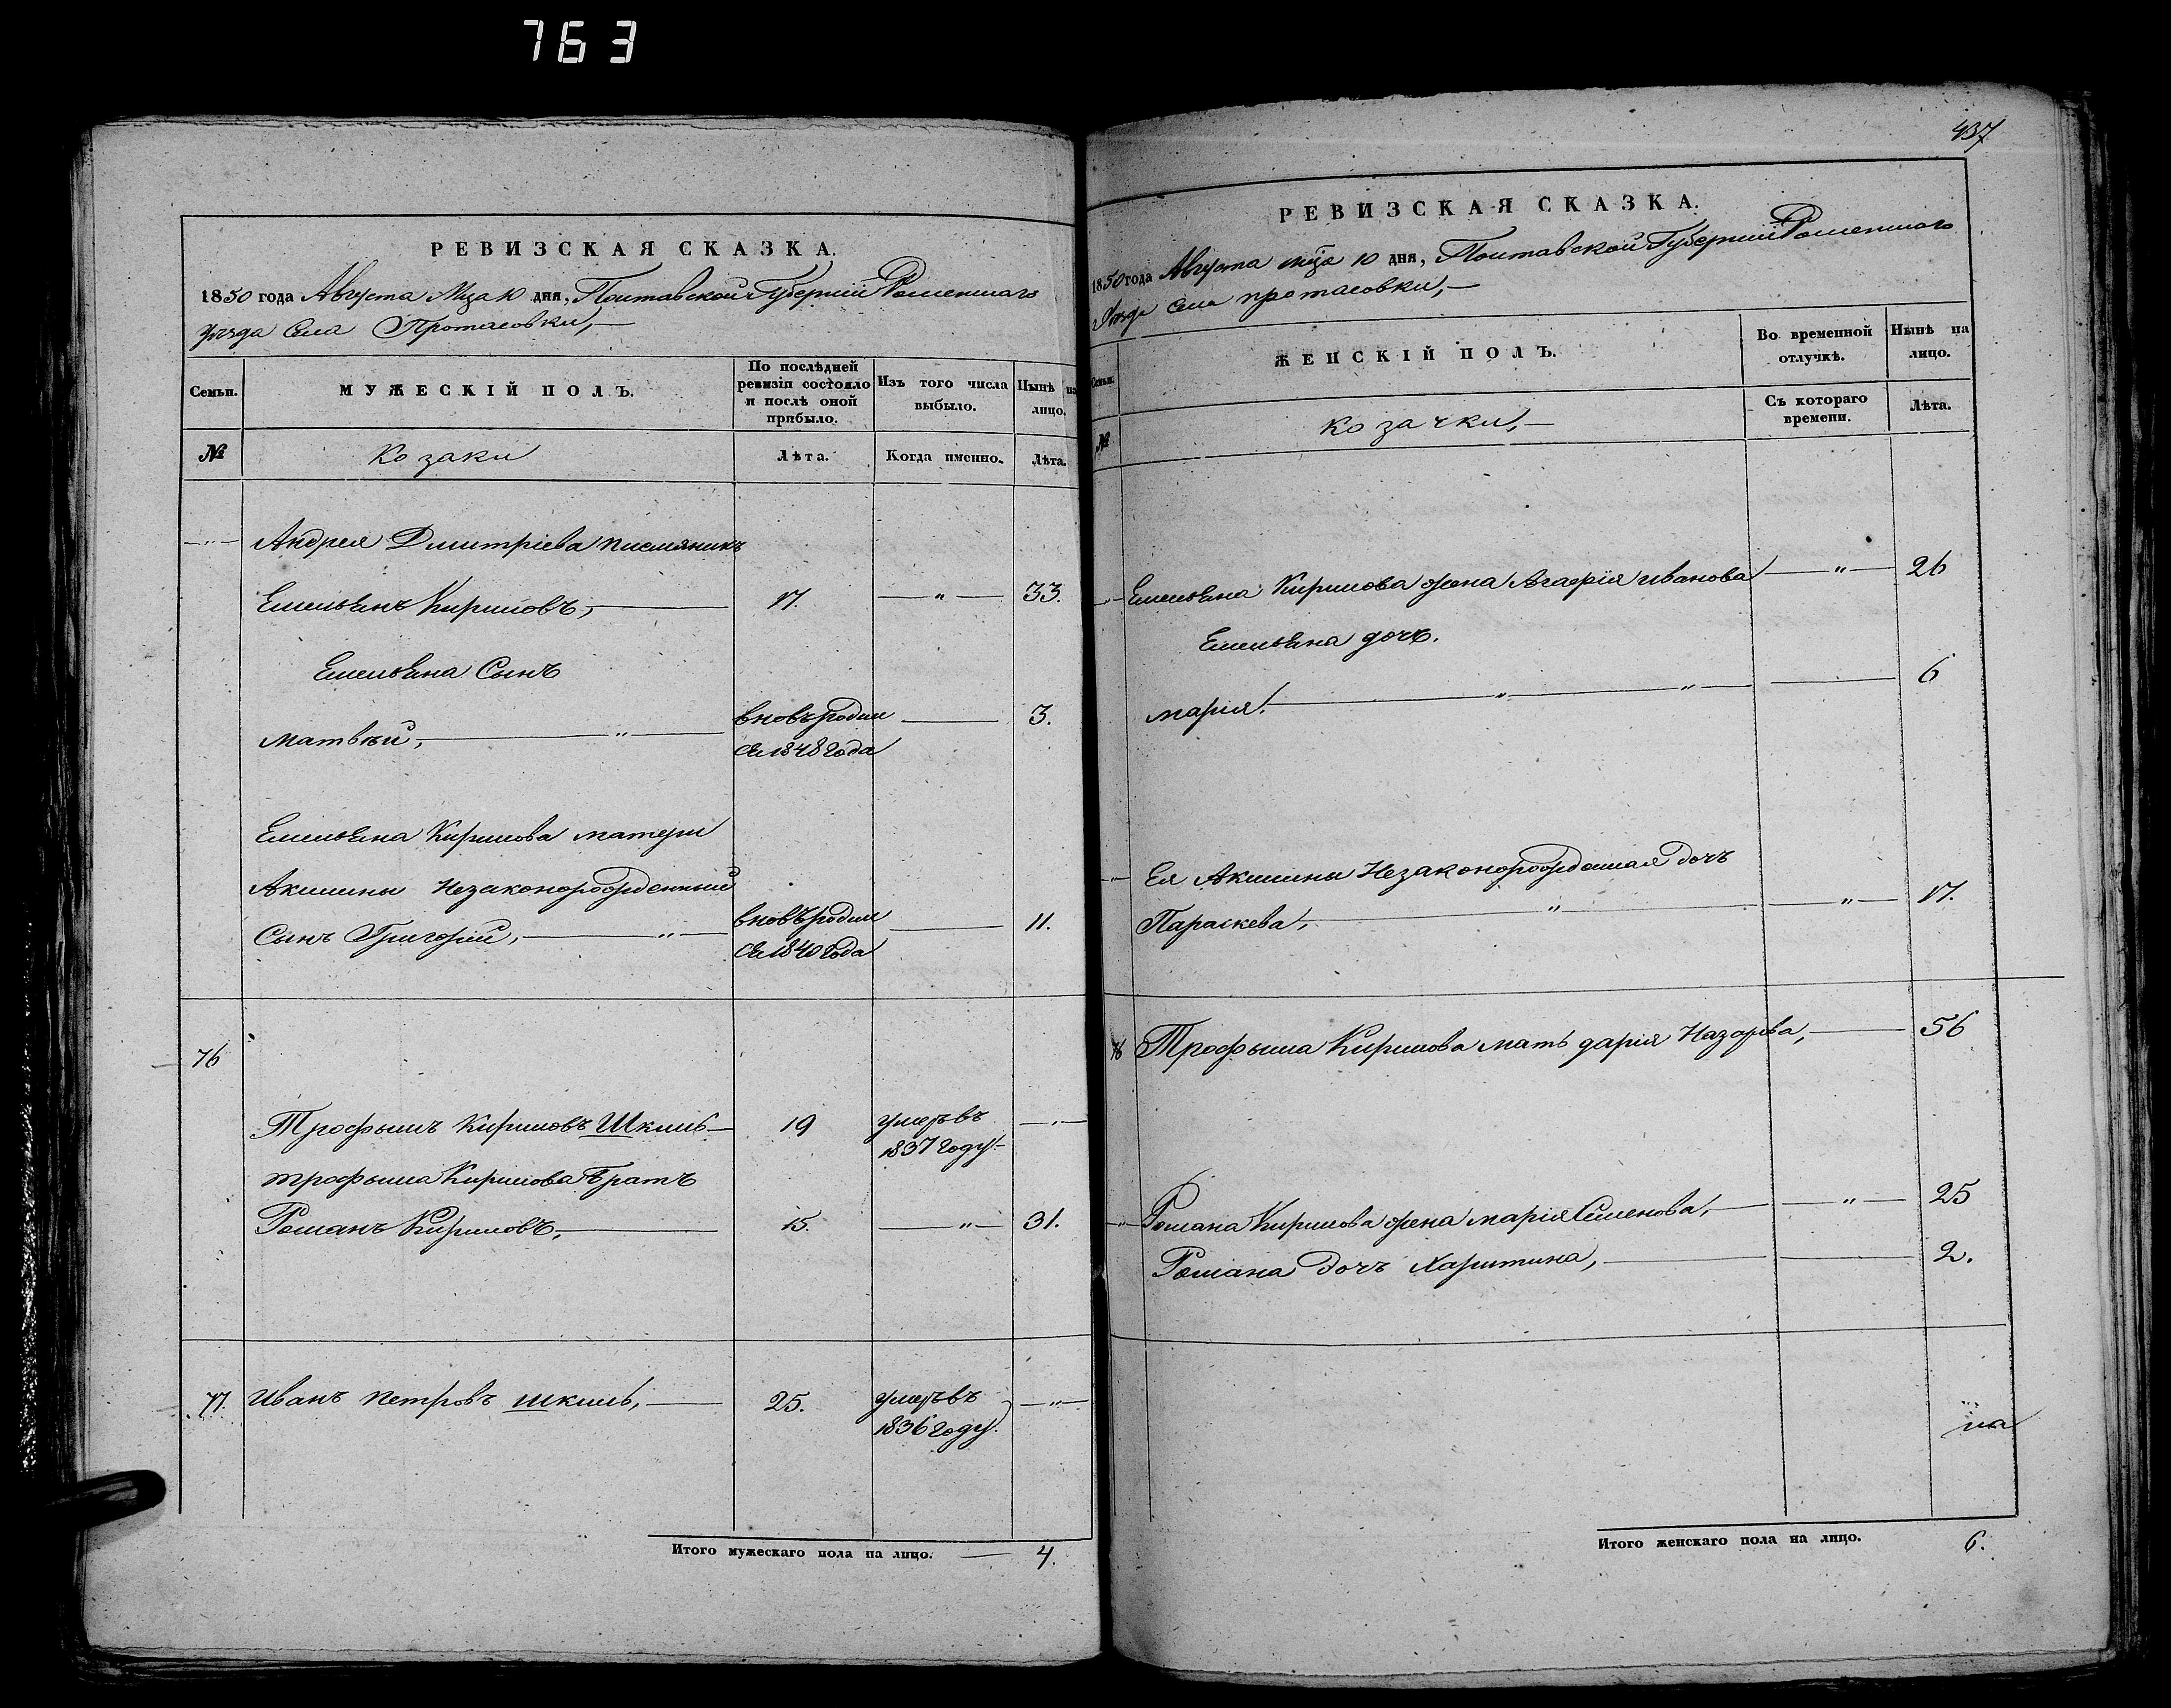 763
РЕВИЗСКАЯ СКАЗКА.
1850 года Августа Мца 10 дня, Полтавской Губернии Роменшаго
уезда Села Протасовки,
Семьи.
МУЖЕСКІЙ ПОЛЪ.
По послѣдней ревизіи состояло и послѣ оной прибыло.
Изъ того числа выбыло.
Нынѣ на лицо.
№
Козаки
Лѣта.
Когда именно.
Лѣта.
Андрея Дмитріева писмяникъ
Емельянъ Кириловъ, 17. 33.
Емельяна Сынъ
Матвѣй, вновь родил 3.
ся 1848 года
Емельяна Кирилова матери
Акилины Незаконорожденный
Сынъ Григорій, вновь родил 11.
ся 1840 года
76
Трофымъ Кириловъ Шкиль 19 умеръ въ
1837 году
трофыма Кирилова братъ
Романъ Кириловъ, 15. 31.
77. Иванъ Петровъ шкиль, 25. умеръ въ
1836 году.
Итого мужескаго пола на лицо. 4.
437
РЕВИЗСКАЯ СКАЗКА.
1850 года Августа мца 10 дня, Полтавской Губерніи Роменшаго
уезда Села протасовки,
Семьи.
ЖЕНСКІЙ ПОЛЪ.
Во временной отлучкѣ.
Нынѣ на лицо.
Съ котораго времени.
Лѣта.
№
козачки,
Емельяна Кирилова жена Агафія иванова 26
Емельяна дочь.
марія. 6
Ея Акилины Незаконорожденная дочъ
Параскева, 17.
76 Трофыма Кирилова мать дарія Назарова, 56
Романа Кирилова жена марія Семенова, 25
Романа дочъ Харитина, 2.
на
Итого женскаго пола на лицо. 6.